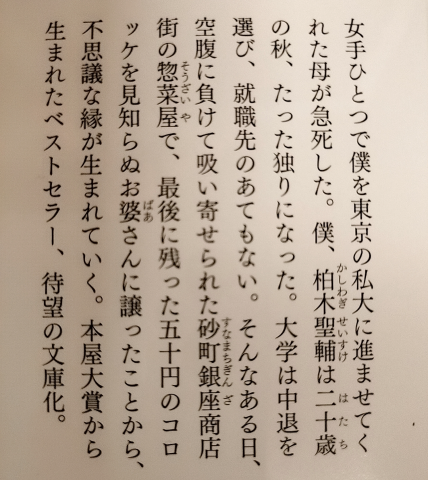 女手ひとつで僕を東京の私大に進ませてく
れた母が急死した。僕、柏木聖輔は二十歳
の秋、たった独りになった。大学は中退を
選び、就職先のあてもない。そんなある日、
空腹に負けて吸い寄せられた砂町銀座商店
街の惣菜屋で、最後に残った五十円のコロ
ッケを見知らぬお婆さんに譲ったことから、
不思議な縁が生まれていく。本屋大賞から
生まれたベストセラー、待望の文庫化。